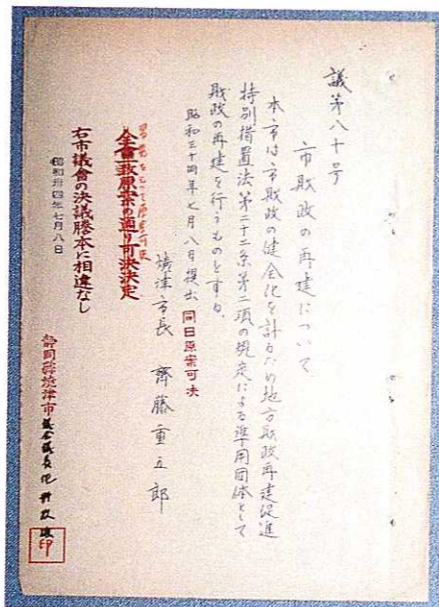 議第八十号
市財政の再建について
本市は市財政の健全化を計るため地方財政再建促進
特別措置法第二十二条第二項の規定による準用団体として
財政の再建を行うものとする。
昭和三十四年七月八日提出 同日原案可決
焼津市長 齊藤重五郎
全會一致原案の通り可決決定
右市議會の決議謄本に相違なし
昭和卅四年七月八日
静岡縣焼津市議会議長
印